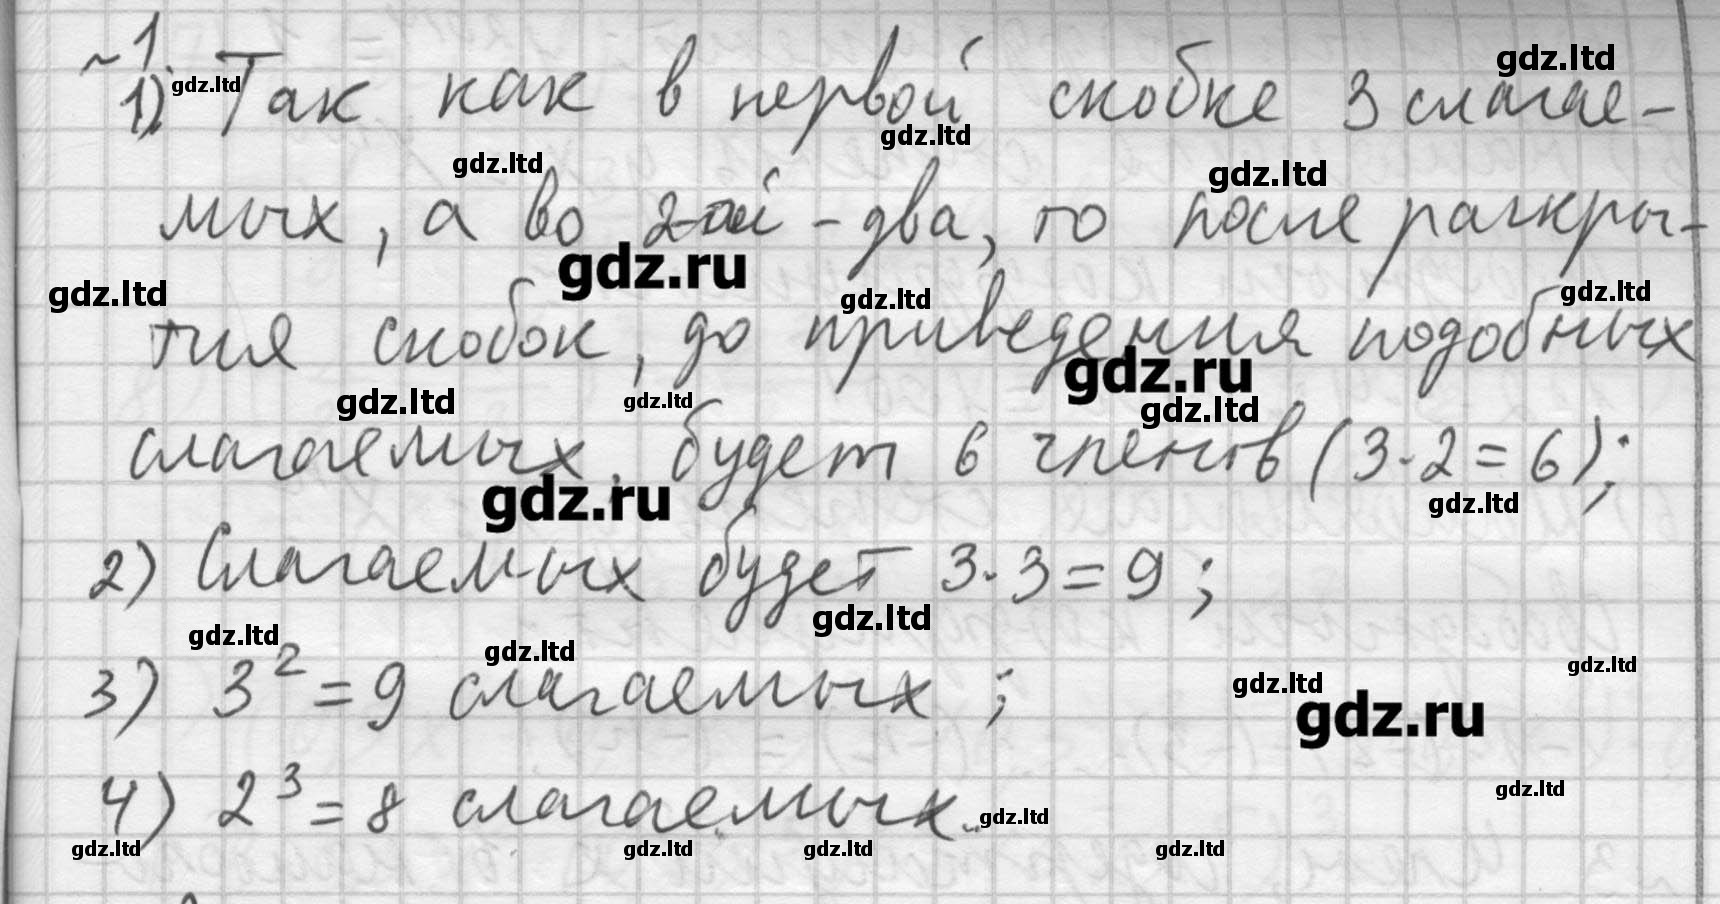 ~1
1) Так как в первой скобке 3 слагае-
мых, а во 2-ой - два, то после раскры-
тия скобок, до приведения подобных
слагаемых, будет 6 членов (3·2=6);
2) Слагаемых будет 3·3=9;
3) 3²=9 слагаемых;
4) 2³=8 слагаемых.
gdz.ltd
gdz.ltd
gdz.ltd
gdz.ltd
gdz.ltd
gdz.ru
gdz.ltd
gdz.ltd
gdz.ltd
gdz.ru
gdz.ltd
gdz.ltd
gdz.ltd
gdz.ru
gdz.ltd
gdz.ltd
gdz.ltd
gdz.ltd
gdz.ltd
gdz.ltd
gdz.ru
gdz.ltd
gdz.ltd
gdz.ltd
gdz.ltd
gdz.ltd
gdz.ltd